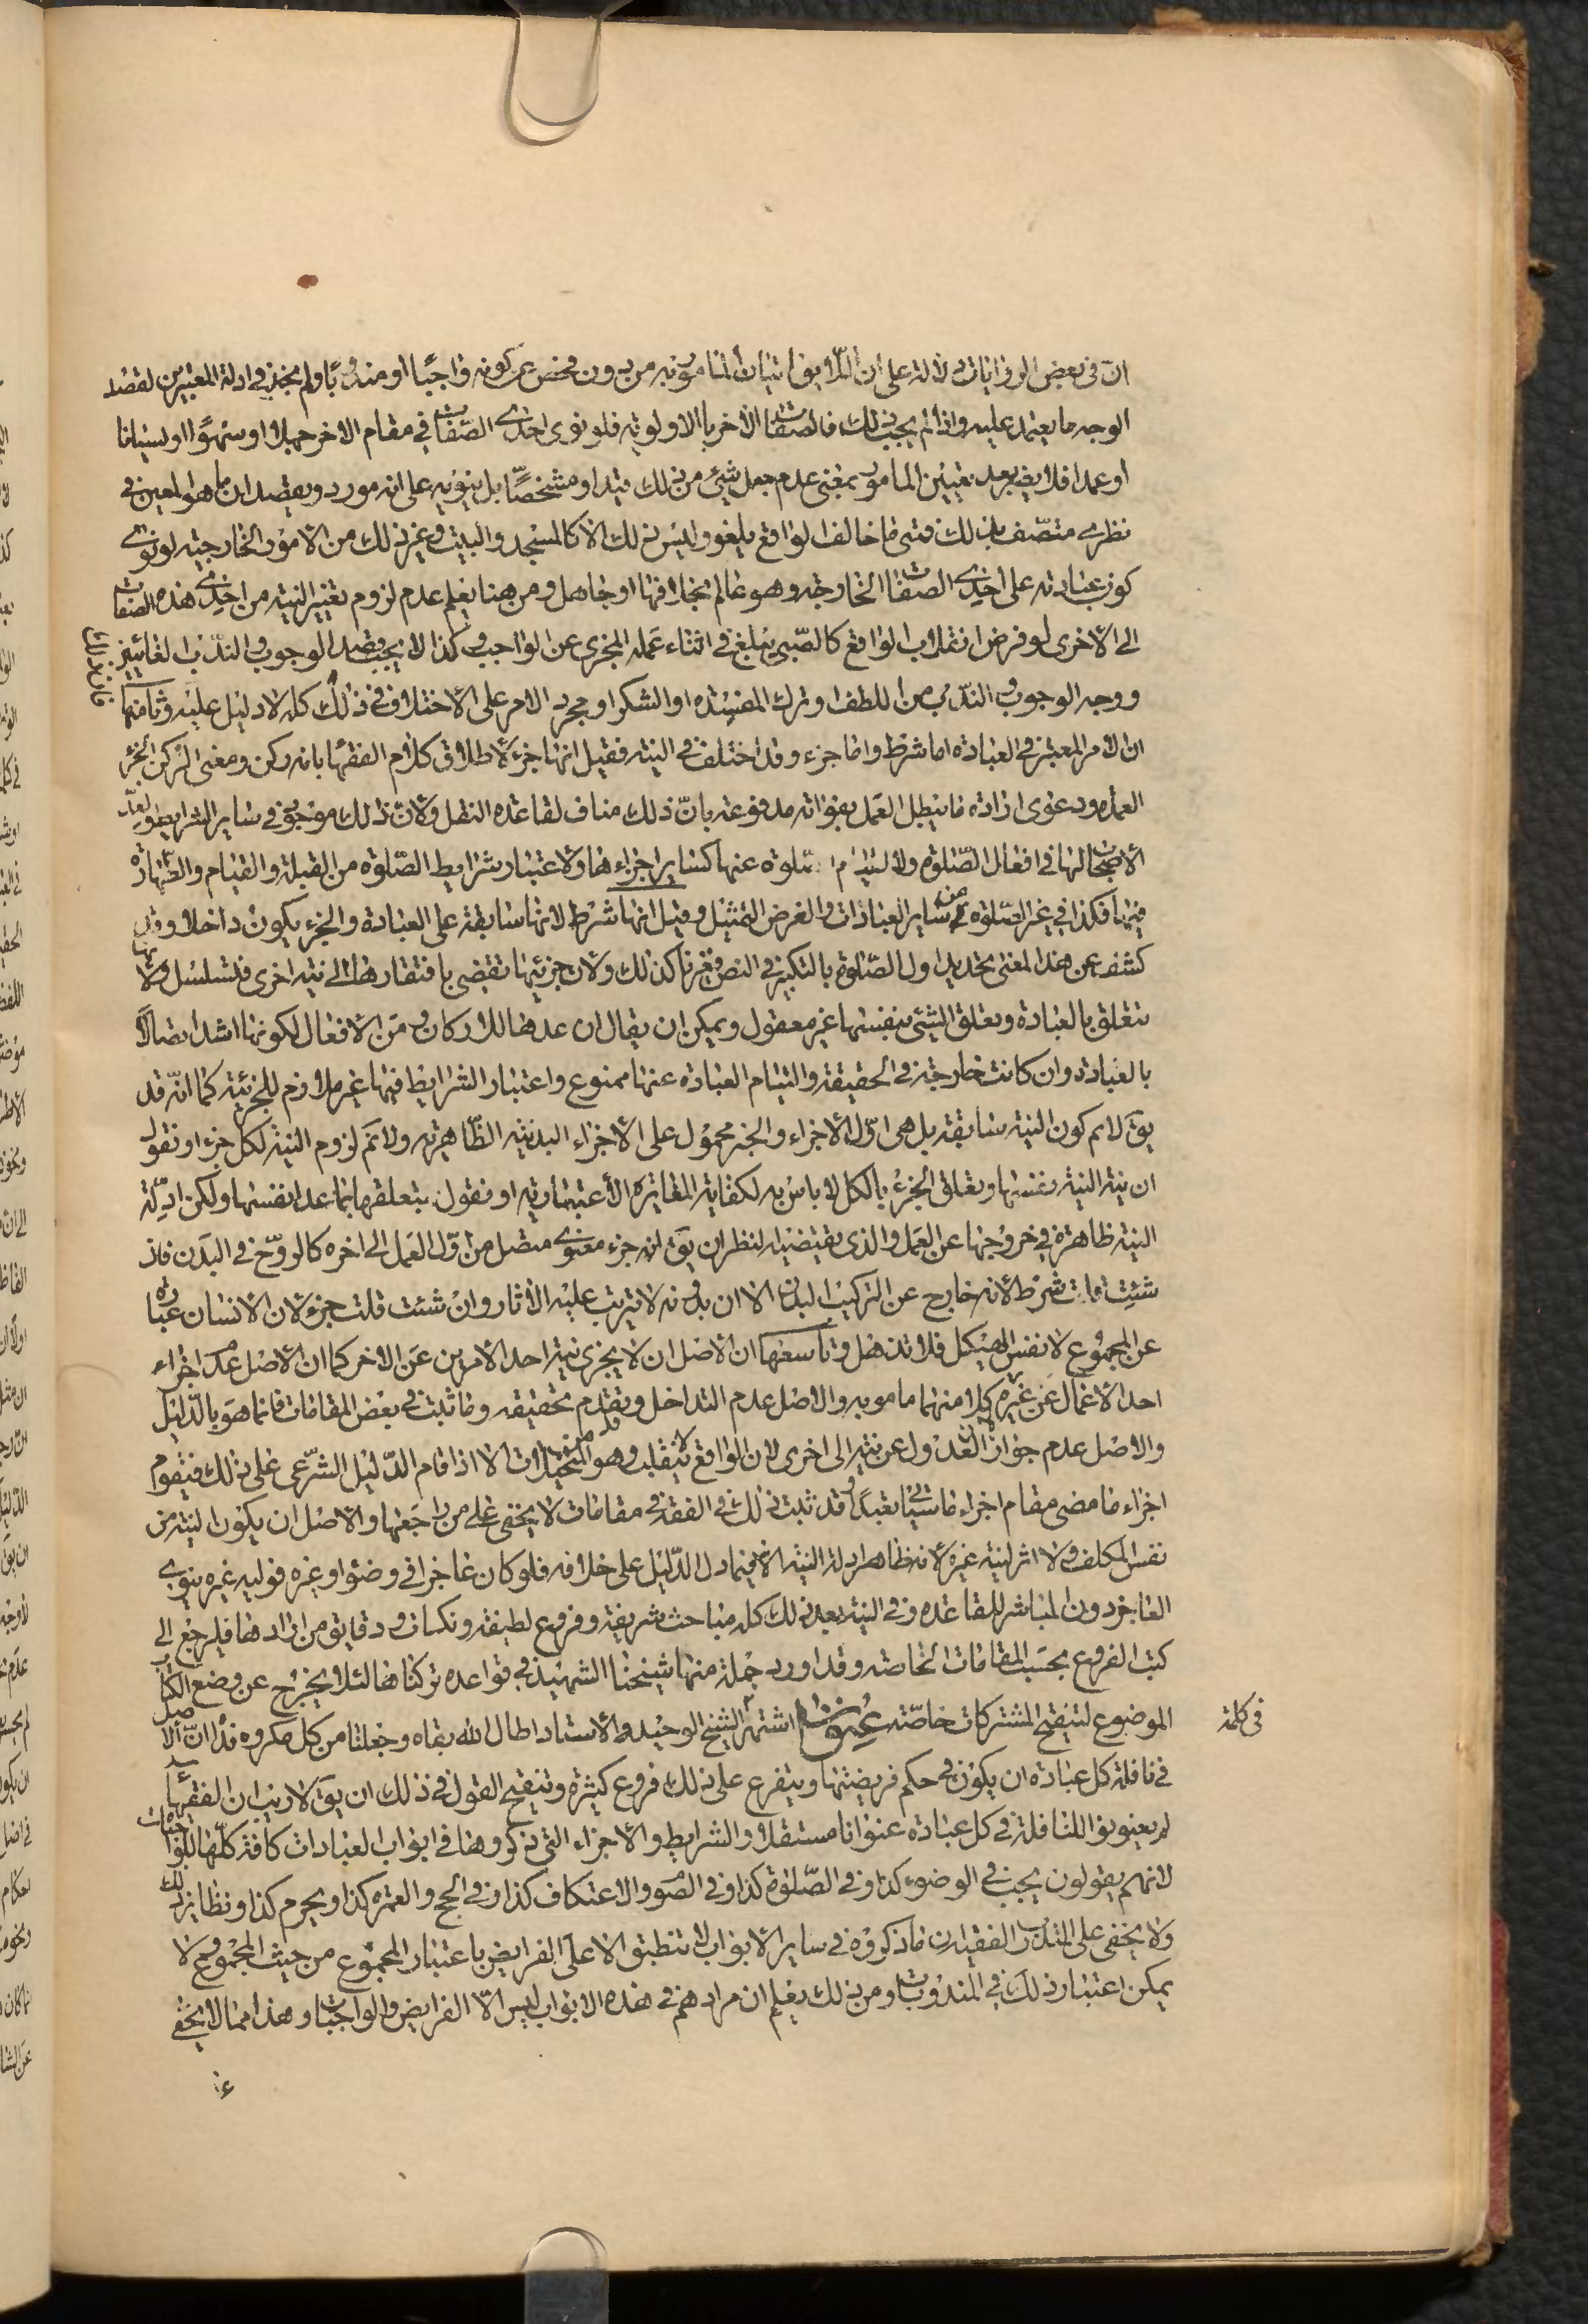 ان في بعض الروايات دلالة على ان اللايق اتيان المامور به من دون فحص عن كونه واجبا او مندوبا ولم يجد في ادلة المعتبرين لقصد
الوجه ما يعتمد عليه واذا لم يجب ذلك فالصفات الاخر بالاولوية فلو نوى احدى الصفات في مقام الاخر جهلا او سهوا او نسيانا
او عمدا فلا يضر بعد تعيين المامور بمعنى عدم جعل شيئ من ذلك قيدا او مشخصا بل ينويه على انه مورد ويعتقد ان ما هو المعين في
نظره متصف بذلك فمتى ما خالف الواقع يلغو وليس ذلك الا كالمسجد والبيت وغير ذلك من الامور الخارجية لو نوى
كون عبادته على احدى الصفات الخارجة وهو عالم بخلافها او جاهل ومن هنا يعلم عدم لزوم تغيير النية من احدى هذه الصفات
الى الاخرى لو فرض انقلاب الواقع كالصبي يبلغ في اثناء عمله المجزي عن الواجب وكذا لا يجب قصد الوجوب والندب الغائيين
ووجه الوجوب والندب من اللطف او ترك المفسدة او الشكر او مجرد الامر على الاختلاف في ذلك كله لا دليل عليه وثامنها
ان الامر المعتبر في العبادة اما شرط واما جزء وقد اختلف في النية فقيل انها جزء لاطلاق كلام الفقها بانه ركن ومعنى الركن الجزء
العمد ودعوى ارادة ما يبطل العمل بفواته مدفوعة بان ذلك مناف لقاعدة النقل ولان ذلك موجود في ساير الشرايط ولعد
الاصحاب لها في افعال الصلوة ولالتيام الصلوة عنها كساير اجزاءها ولاعتبار شرايط الصلوة من القبلة والقيام والطهارة
فيها فكذا في غير الصلوة من ساير العبادات والغرض التمثيل وقيل انها شرط لانها سابقة على العبادة والجزء يكون داخلا وقد
كشف عن هذا المعنى تحديد اول الصلوة بالتكبير في النص وغيرها كذلك ولان جزئيتها تقضي بافتقارها الى نية اخرى فتسلسل ولانها
تتعلق بالعبادة وتعلق الشئ بنفسها غير معقول ويمكن ان يقال ان عدها للاركان و من الافعال لكونها اشد اتصالا
بالعبادة وان كانت خارجة في الحقيقة والتيام العبادة عنها ممنوع واعتبار الشرايط فيها غير ملازم للجزئية كما انه قد
يق لا نم كون النية سابقة بل هي اول الاجزاء والخبر محمول على الاجزاء البدنية الظاهرية ولا نم لزوم النية لكل جزء او نقول
ان نية النية بنفسها وتعلق الجزء بالكل لا باس به لكفاية المغايرة الاعتبارية او نقول بتعلقها بما عدا نفسها ولكن ادلة
النية ظاهرة في خروجها عن العمل والذي يقتضيه النظر ان يق انه جزء معنوي متصل من اول العمل الى اخره كالروح في البدن فان
شئت قلت شرط لانه خارج عن التركيب البدني الا ان بدونه لا يترتب عليه الاثار وان شئت قلت جزء لان الانسان عبارة
عن المجموع لا نفس الهيكل فلا تذهل وتاسعها ان الاصل ان لا يجزي نية احد الامرين عن الاخر كما ان الاصل عدم اجزاء
احد الاعمال عن غيره لان كلا منهما مامور به والاصل عدم التداخل وتقدم تحقيقه وما ثبت في بعض المقامات فانما هو بالدليل
والاصل عدم جواز العدول عن نية الى اخرى لان الواقع لا ينقلب وهو من المستحيلات الا اذا قام الدليل الشرعي على ذلك فيقوم
اجزاء ما مضى مقام اجزاء ما سياتي تعبدا وقد ثبت ذلك في الفقه في مقامات لا يخفى على من راجعها والاصل ان يكون النية من
نفس المكلف ولا اثر لنية غيره لانه ظاهر ادلة النية الا فيما دل الدليل على خلافه فلو كان عاجزا في وضوء او غيره فوليه غيره ينوي
العاجز دون المباشر للقاعدة وفي النية بعد ذلك كله مباحث شريفة وفروع لطيفة ونكات ودقايق من ارادها فليرجع الى
كتب الفروع بحسب المقامات الخاصة وقد اورد جملة منها شيخنا الشهيد في قواعده تركناها لئلا يخرج عن وضع الكتاب
الموضوع لتنقيح المشتركات خاصة عنوان اشتهر الشيخ الوحيد والاستاد اطال الله بقاه وجعلنا من كل مكروه فداه ان الاصل
في نافلة كل عبادة ان يكون في حكم فريضتها ويتفرع على ذلك فروع كثيرة وتنقيح القول في ذلك ان يق لا ريب ان الفقهاء
لم يعنونوا للنافلة في كل عبادة عنوانا مستقلا والشرايط والاجزاء التي ذكروها في ابواب العبادات كافة كلها للواجبات
لانهم يقولون يجب في الوضوء كذا وفي الصلوة كذا وفي الصوم والاعتكاف كذا وفي الحج والعمرة كذا ويحرم كذا ونظاير ذلك
ولا يخفى على المتدرب الفقيه ان ما ذكروه في ساير الابواب لا تنطبق الا على الفرايض باعتبار المجموع من حيث المجموع ولا
يمكن اعتبار ذلك في المندوبات ومن ذلك يعلم ان مرادهم في هذه الابواب ليس الا الفرايض والواجبات وهذا مما لا يخفى